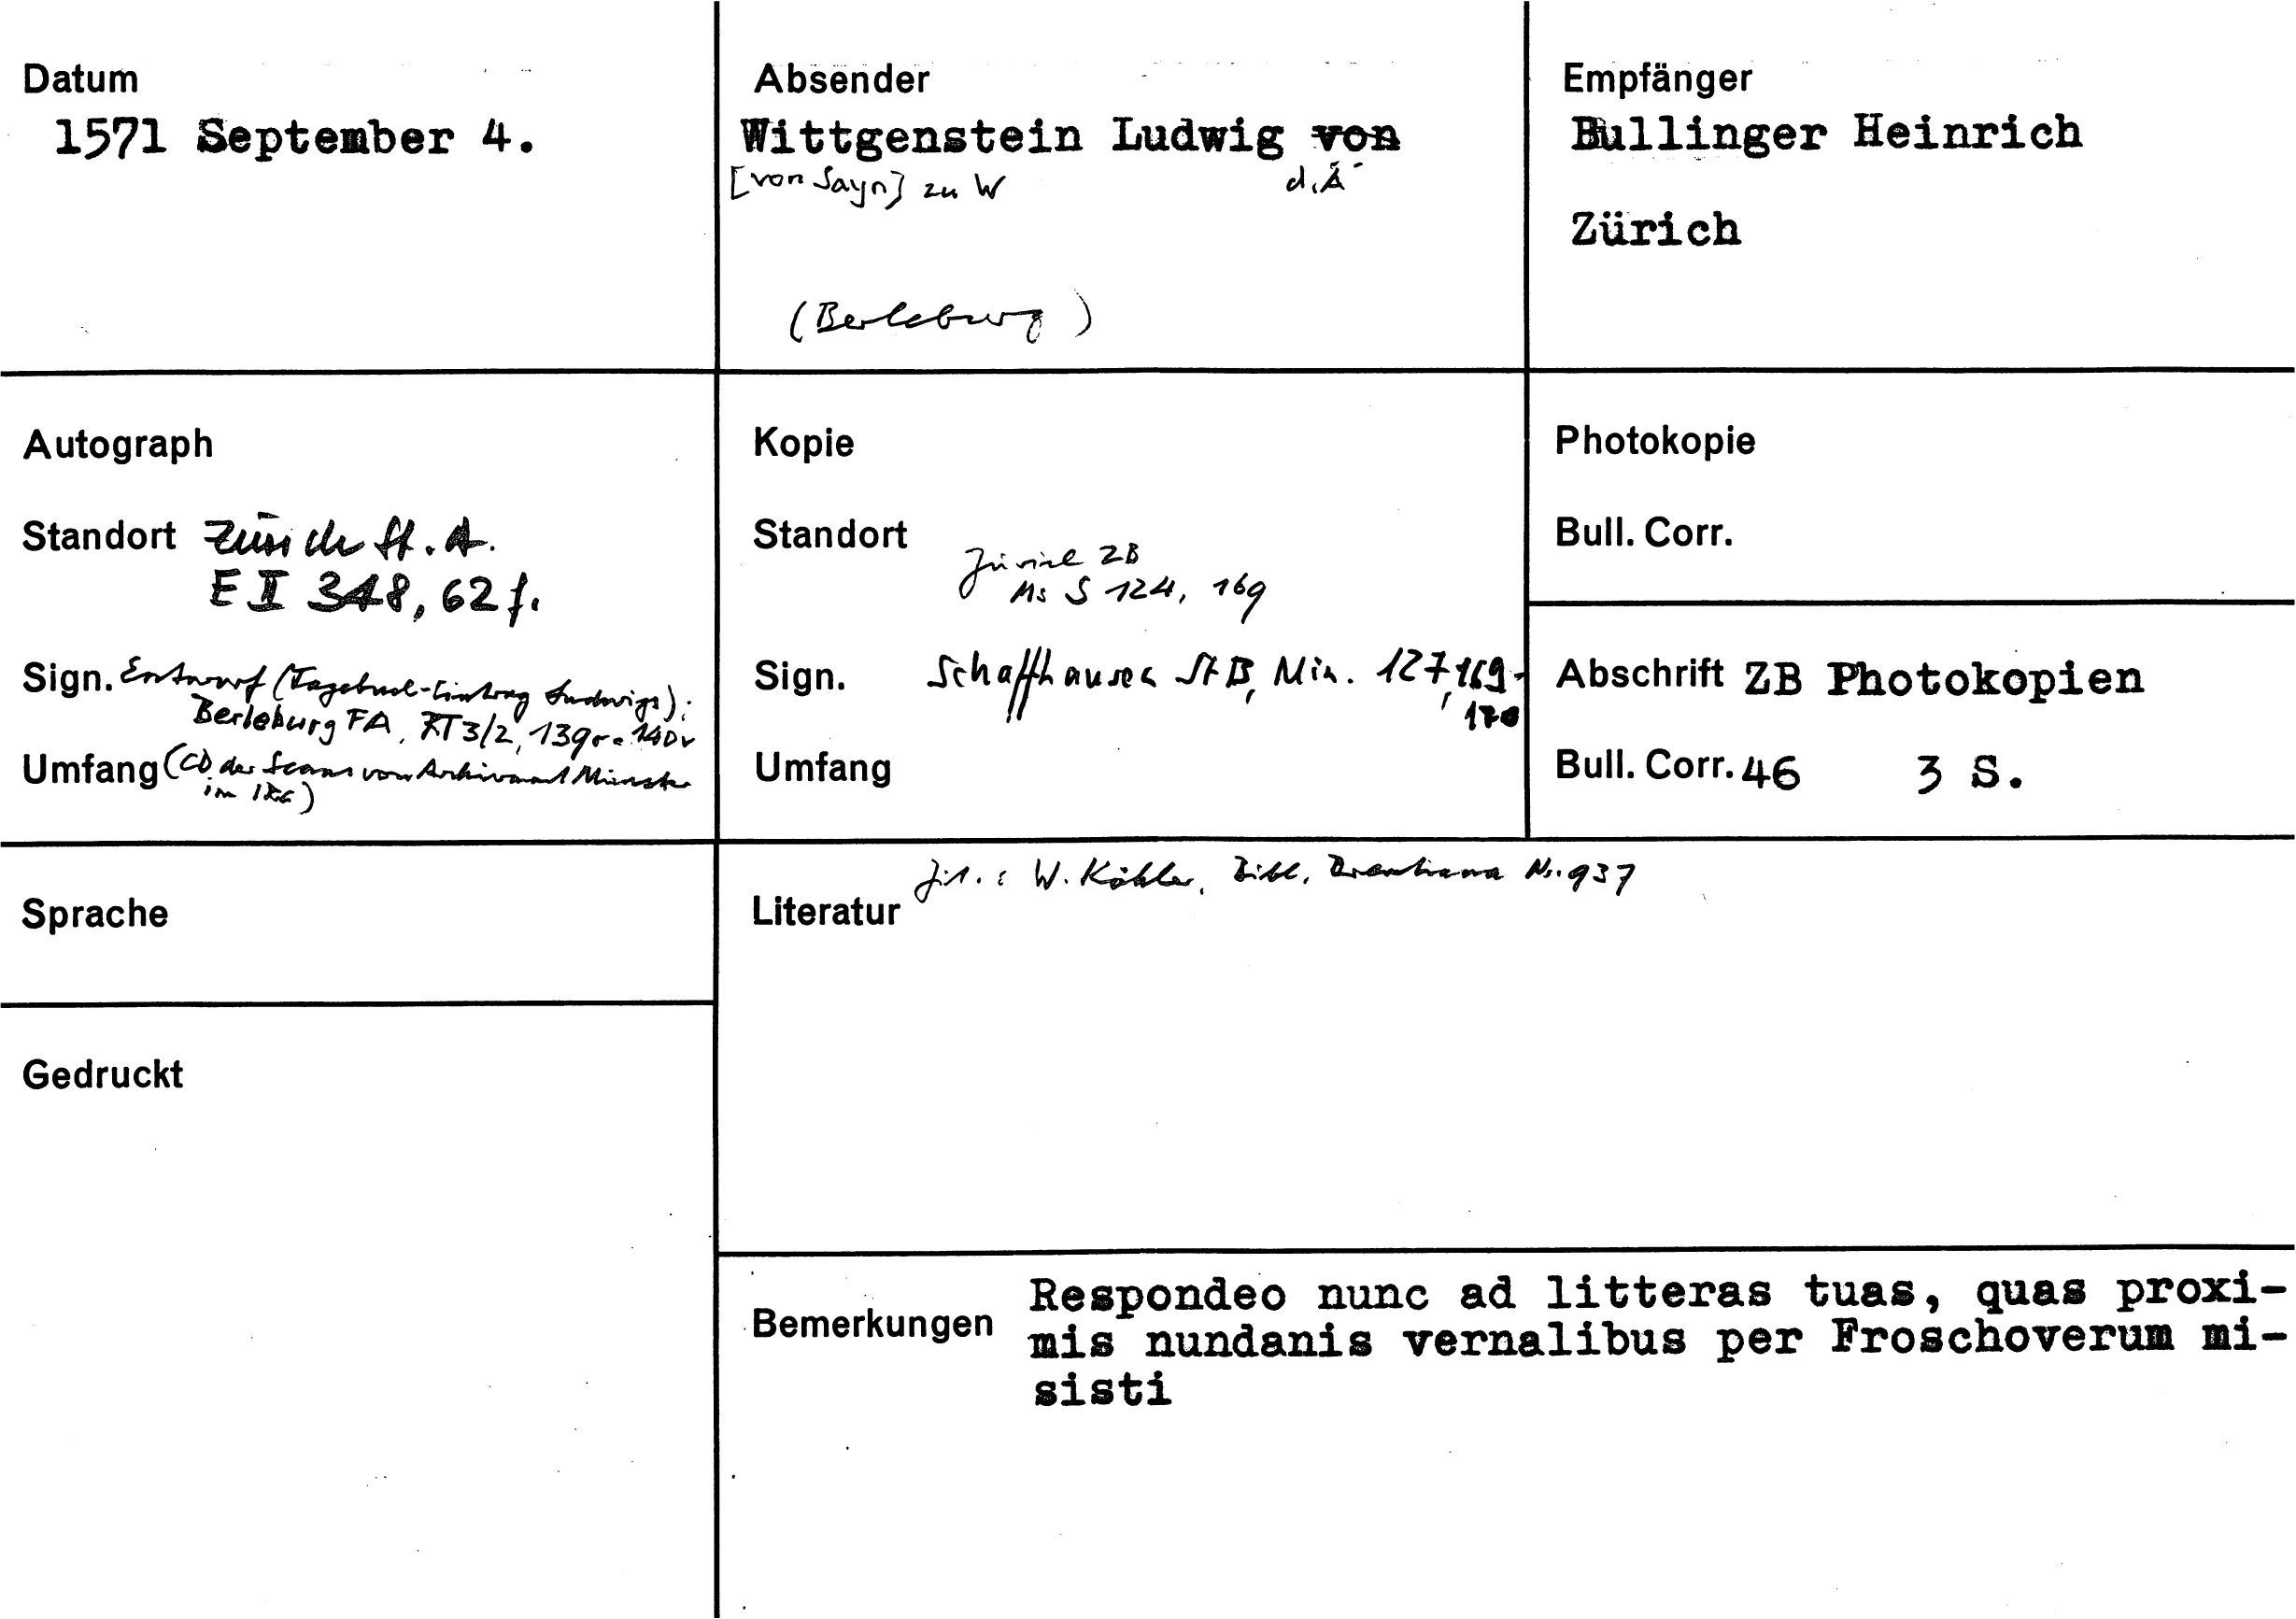 Datum
1571 September 4.
Absender
Wittgenstein Ludwig von
[von Sayn] zu W d.Ä
(Berleburg)
Empfänger
Bullinger Heinrich
Zürich
Autograph
Standort Zürich St.A.
E II 348, 62 f.
Sign. Entwurf (Tagebuch-Eintrag Ludwigs):
Berleburg FA, RT 3/2, 139r-140v
Umfang (CD der Scans vom Archivamt Münster
im IRG)
Kopie
Standort
Zürich ZB
Ms S 124, 169
Sign. Schaffhausen StB, Min. 127, 169-
170
Umfang
Photokopie
Bull. Corr.
Abschrift ZB Photokopien
Bull. Corr. 46 3 S.
Sprache
Gedruckt
Zit.: W. Köhler, Bibl. Brentiana Nr. 937
Literatur
Bemerkungen
Respondeo nunc ad litteras tuas, quas proxi-
mis nundanis vernalibus per Froschoverum mi-
sisti